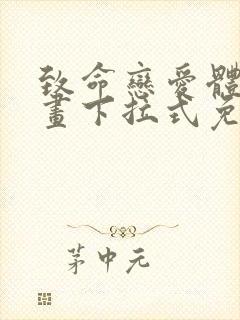 致命戀愛體
畫下拉式免
茅中元